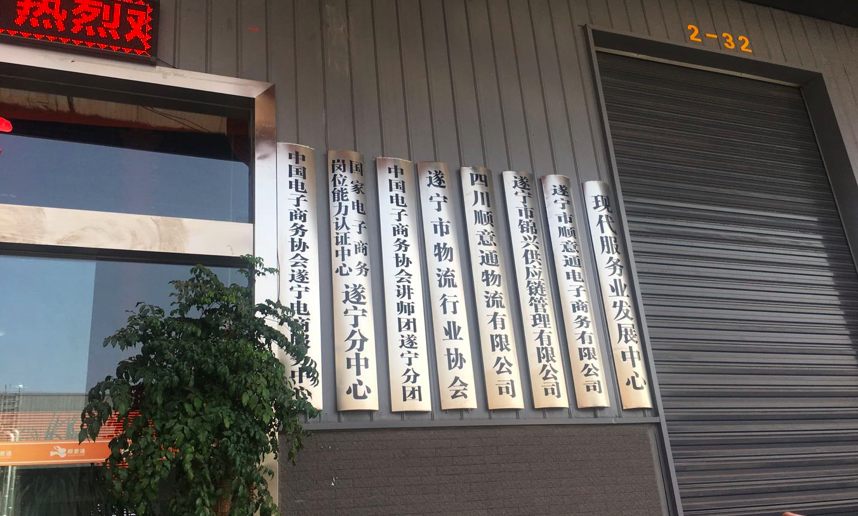 热烈欢
2-32
中国电子商务协会遂宁电商服务中心
国家电子商务
岗位能力认证中心
遂宁分中心
中国电子商务协会讲师团遂宁分团
遂宁市物流行业协会
四川顺意通物流有限公司
遂宁市锦兴供应链管理有限公司
遂宁市顺意通电子商务有限公司
现代服务业发展中心